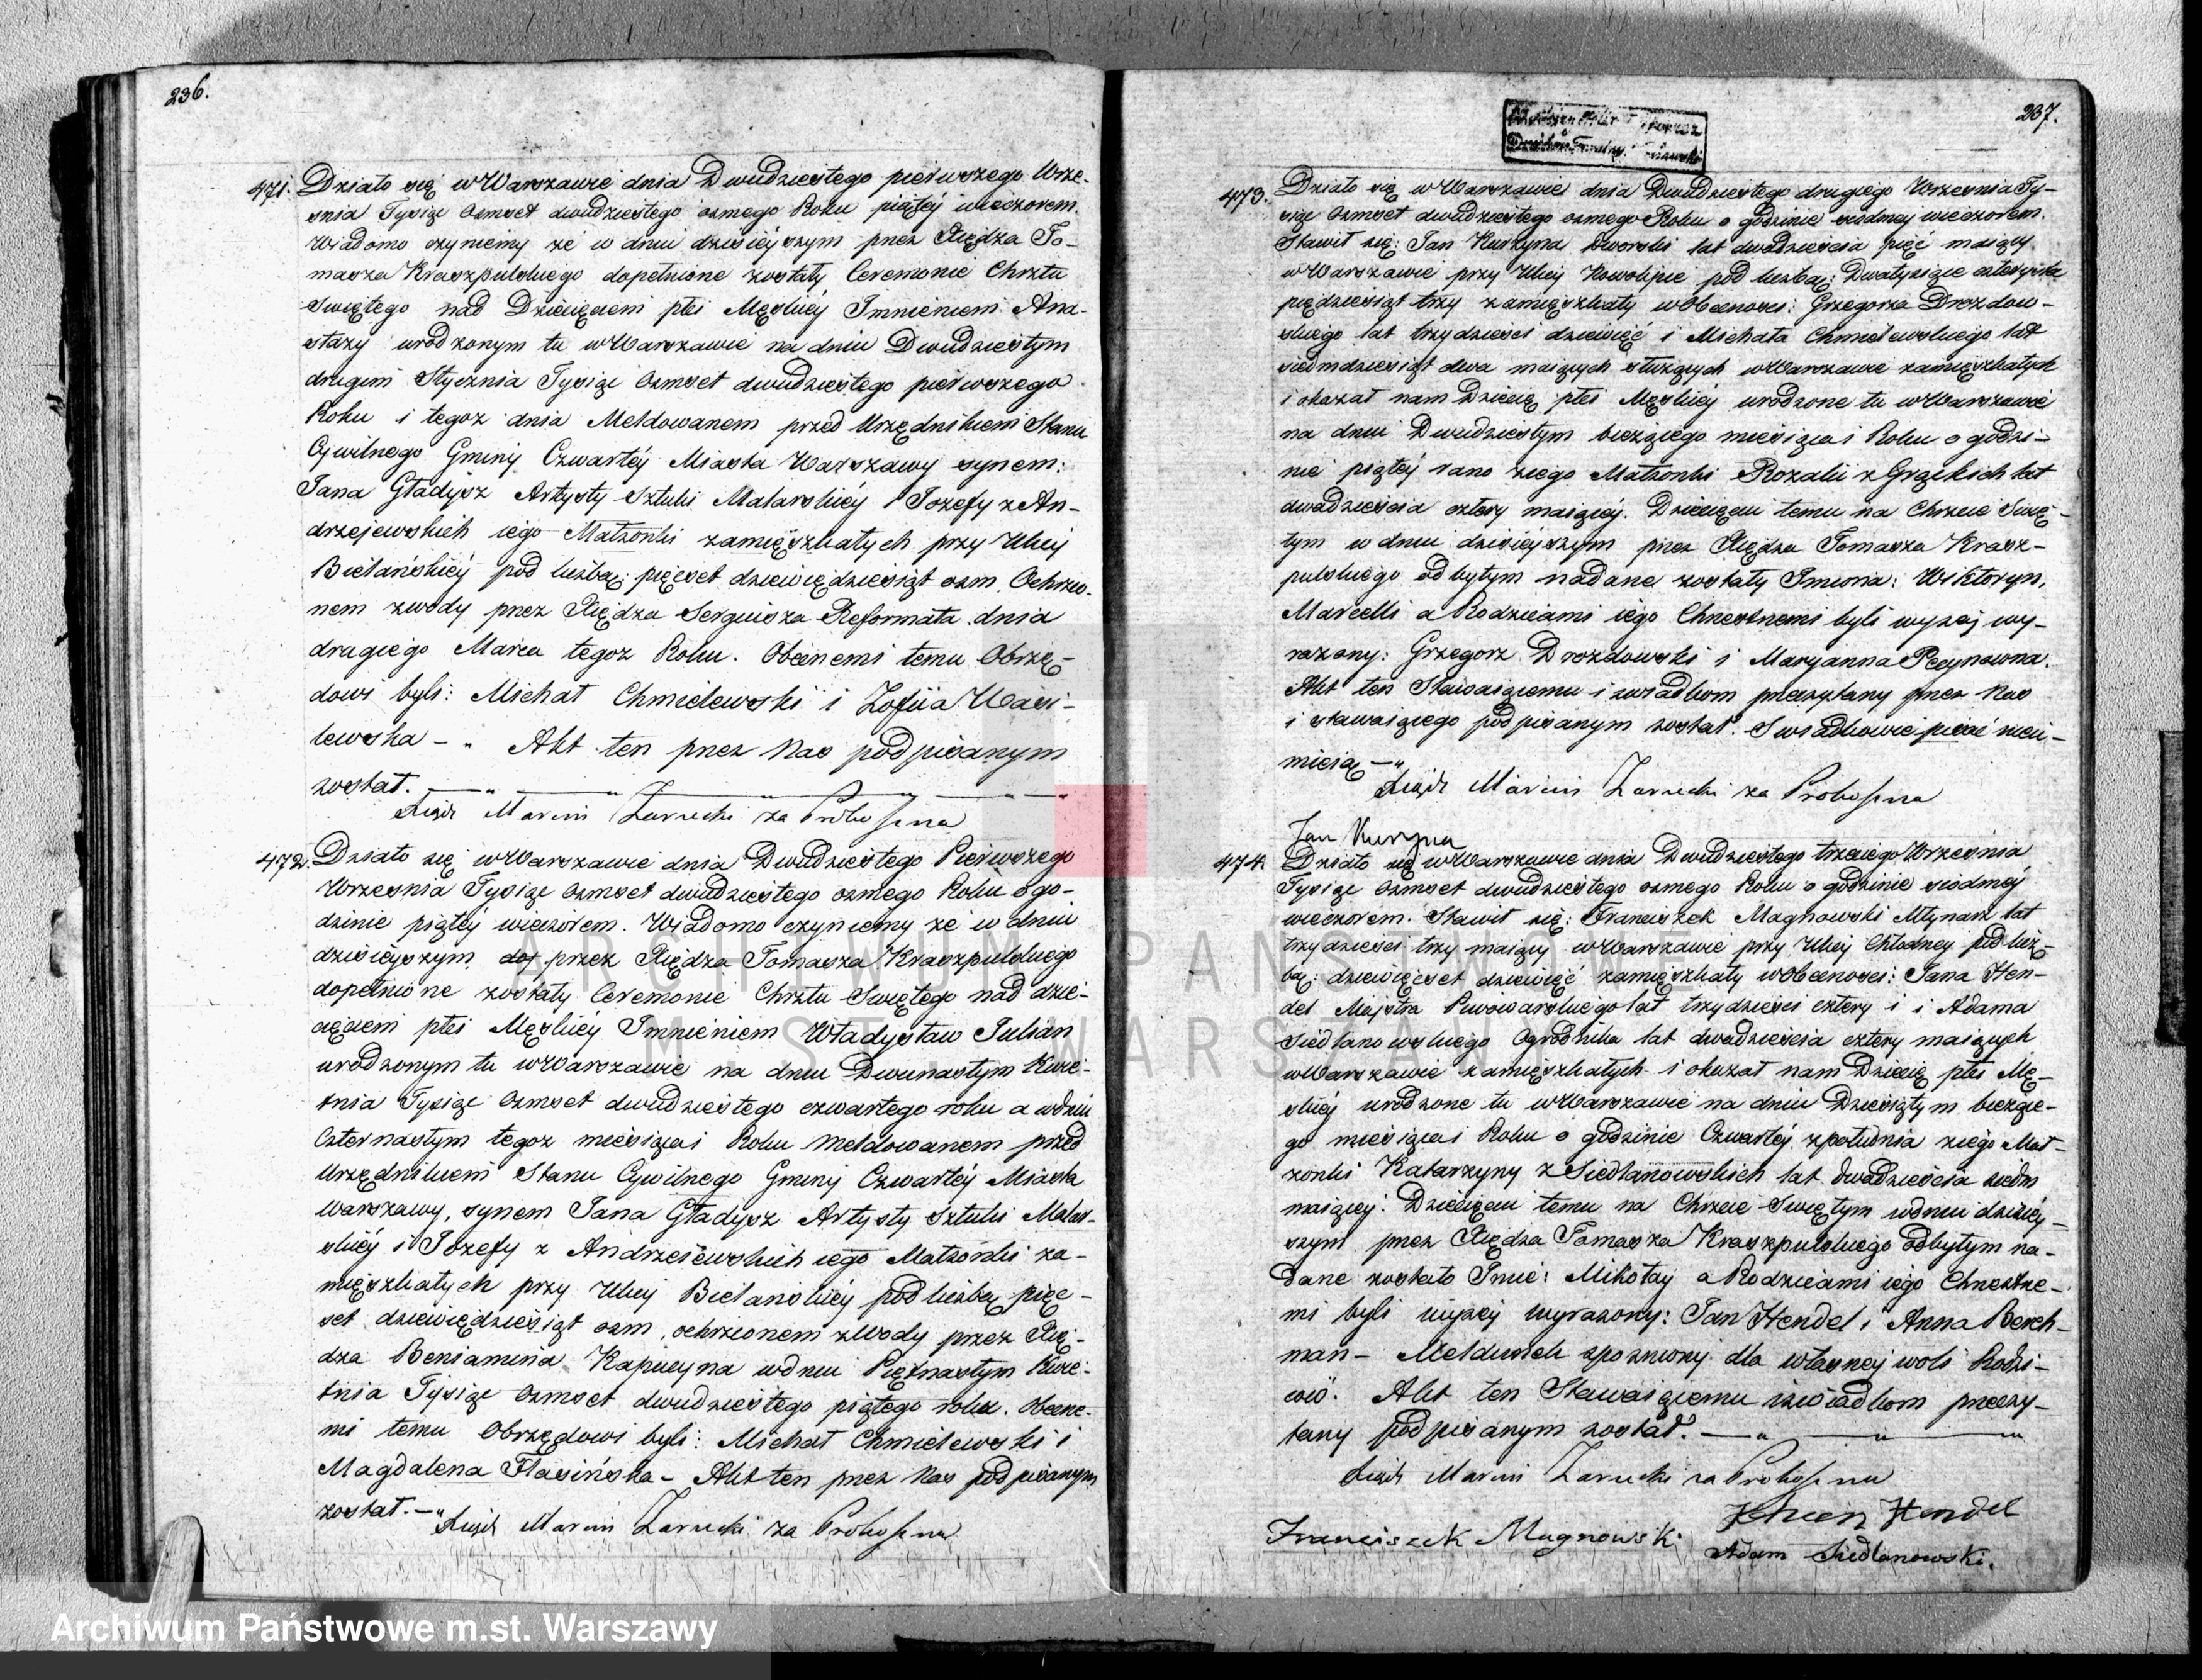 236.
471. Działo się w Warszawie dnia Dwudziestego pierwszego Wrze-
śnia Tysiąc Osmset dwudziestego osmego Roku piątej wieczorem.
Wiadomo czyniemy że w dniu dzisieyszym przez Xiędza To-
masza Kraszpulskiego dopełnione zostały Ceremonie Chrztu
Swiętego nad Dziecięciem płci Męskiéy Imnieniem Ana-
stazy urodzonym tu w Warszawie na dniu Dwudziestym
drugim Stycznia Tysiąc Osmset dwudziestego pierwszego
Roku i tegoz dnia Meldowanem przed Urzędnikiem Stanu
Cywilnego Gminy Czwartéy Miasta Warszawy synem:
Jana Gładysz Artysty Sztuki Malarskiéy i Jozefy z An-
drzejewskich iego Małżonki zamięszkałych przy Ulicy
Bielańskiéy pod liczbą: pięćset dziewięćdziesiąt osm. Ochrzco-
nem z wody przez Xiędza Serguisza Reformata dnia
drugiego Marca tegoz Roku. Obecnemi temu Obrzę-
dowi byli: Michał Chmielewski i Zofiia Wasi-
lewska - " Akt ten przez Nas podpisanym
został.
Xiądz Marcin Zarzecki za Proboszcza
472. Działo się w Warszawie dnia Dwudziestego Pierwszego
Wrzesnia Tysiąc Osmset dwudziestego osmego Roku o go-
dzinie piątéy wieczorem. Wiadomo czyniemy że w dniu
dzisieyszym przez Xiędza Tomasza Kraszpulskiego
dopełnione zostały Ceremonie Chrztu Swiętego nad dzie-
cięciem płci Męskiéy Imnieniem Władysław Julian
urodzonym tu w Warszawie na dniu Dwunastym Kwie-
tnia Tysiąc Osmset dwudziestego czwartego roku a w dniu
Czternastym tegoz miesiąca i Roku meldowanem przed
Urzędnikiem Stanu Cywilnego Gminy Czwartéy Miasta
Warszawy, synem Jana Gładysz Artysty Sztuki Malar-
skiéy i Jozefy z Andrzeiewskich iego Małżonki za-
mięszkałych przy Ulicy Bielanskiéy pod liczbą pięć-
set dziewięćdziesiąt osm, ochrzconem z Wody przez Xię-
dza Beniamina Kapucyna w dniu Piętnastym Kwie-
tnia Tysiąc Osmset dwudziestego piątego roku. Obecne-
mi temu Obrzędowi byli: Michał Chmielewski i
Magdalena Flasińska - Akt ten przez Nas podpisanym
został. - "
Xiądz Marcin Zarzecki za Proboszcza
237.
473. Działo się w Warszawie dnia Dwudziestego drugiego Wrzesnia Ty-
siąc Osmset dwudziestego osmego Roku o godzinie siodmej wieczorem.
Stawił się: Jan Kurzyna Dworski lat dwadziescia pięć maiący
w Warszawie przy Ulicy Nowolipie pod liczbą: Dwatysiące czterysta
pięcdziesiąt trzy zamięszkały w Obecnosci: Grzegorza Drozdow-
skiego lat trzydziesci dziewięć i Michała Chmielewskiego lat
siedmdziesiąt dwa maiących służących w Warszawie zamięszkałych
i okazał nam Dziecię płci Męskiéy urodzone tu w Warszawie
na dniu Dwudziestym bieżącego miesiąca i Roku o godzi-
nie piątéy rano z iego Małżonki Rozalii z Grząkich lat
dwadziescia cztery maiącéy. Dziecięciu temu na Chrzcie Swię-
tym w dniu dzisieyszym przez Xiędza Tomasza Krasz-
pulskiego odbytym nadane zostały Imiona: Wiktoryn,
Marcelli a Rodzicami iego Chrzestnemi byli wyżej wy-
rażony: Grzegorz Drozdowski i Maryanna Pecynowna.
Akt ten Stawaiącemu i swiadkom przeczytany przez Nas
i stawaiącego podpisanym został. Swiadkowie pisać nieu-
mieią - "
Xiądz Marcin Zarzecki za Proboszcza
Jan Kurzyna
474. Działo się w Warszawie dnia Dwudziestego trzeciego Wrzesnia
Tysiąc Osmset dwudziestego osmego Roku o godzinie siodméy
wieczorem. Stawił się: Franciszek Magnowski Młynarz lat
trzydziesci trzy maiący w Warszawie przy Ulicy Chłodney pod licz-
bą: dziewięćset dziewięć zamięszkały w Obecnosci: Jana Hen-
del Majstra Piwowarskiego lat trzydziesci cztery i i Adama
Siedlanowskiego Ogrodnika lat dwadziescia cztery maiących
w Warszawie zamięszkałych i okazał nam Dziecię płci Mę-
skiéy urodzone tu w Warszawie na dniu Dziesiątym bieżące-
go miesiąca i Roku o godzinie Czwartéy z południa z iego Mał-
żonki Katarzyny z Siedlanowskich lat dwadziescia siedm
maiącey. Dziecięciu temu na Chrzcie Swiętym w dniu dzisiéy-
szym przez Xiędza Tomasza Kraszpulskiego odbytym na-
dane zostało Imie: Mikołay a Rodzicami iego Chrzestne-
mi byli wyżey wyrażony: Jan Hendel i Anna Berch-
man - Meldunek spozniony dla własney woli Rodzi-
ców. Akt ten Stawaiącemu i swiadkom przeczy-
tany podpisanym został.
Xiądz Marcin Zarzecki za Proboszcza
Franciszek Magnowski Hendel
Adam Siedlanowski.
ARCHIWUM PAŃSTWOWE
M.ST. WARSZAWY
Archiwum Państwowe m.st. Warszawy